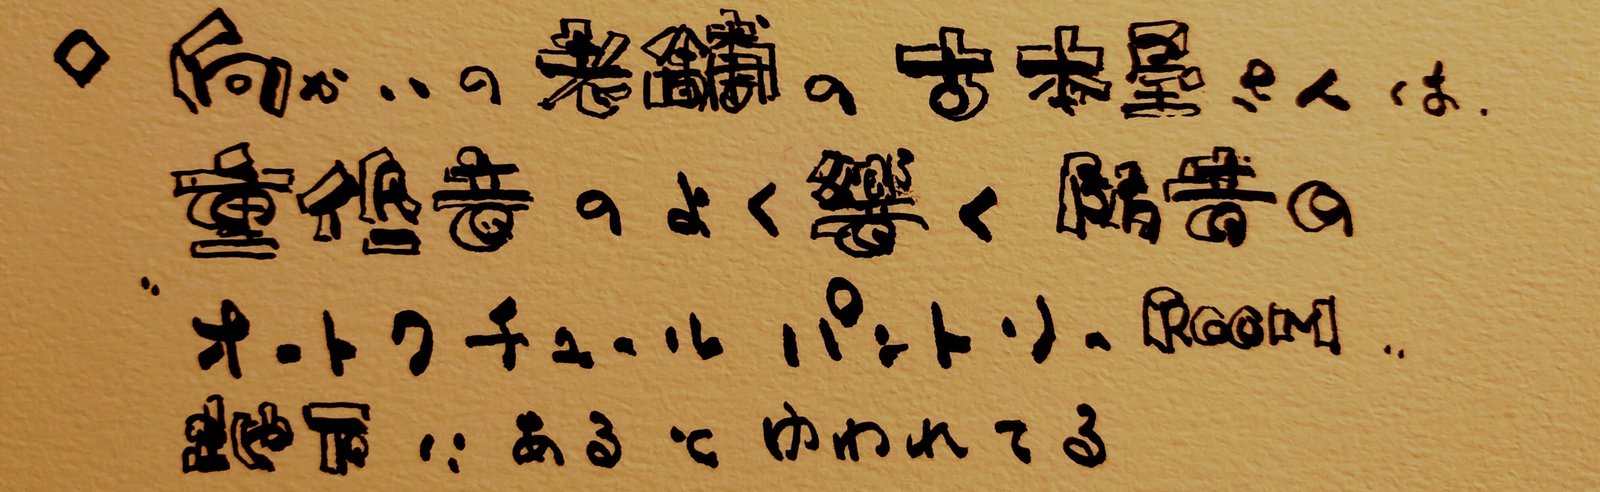 ◇ 向かいの老舗の古本屋さんは、
重低音のよく響く防音の
"オートクチュールパントリーROOM"
地下にあるとゆわれてる